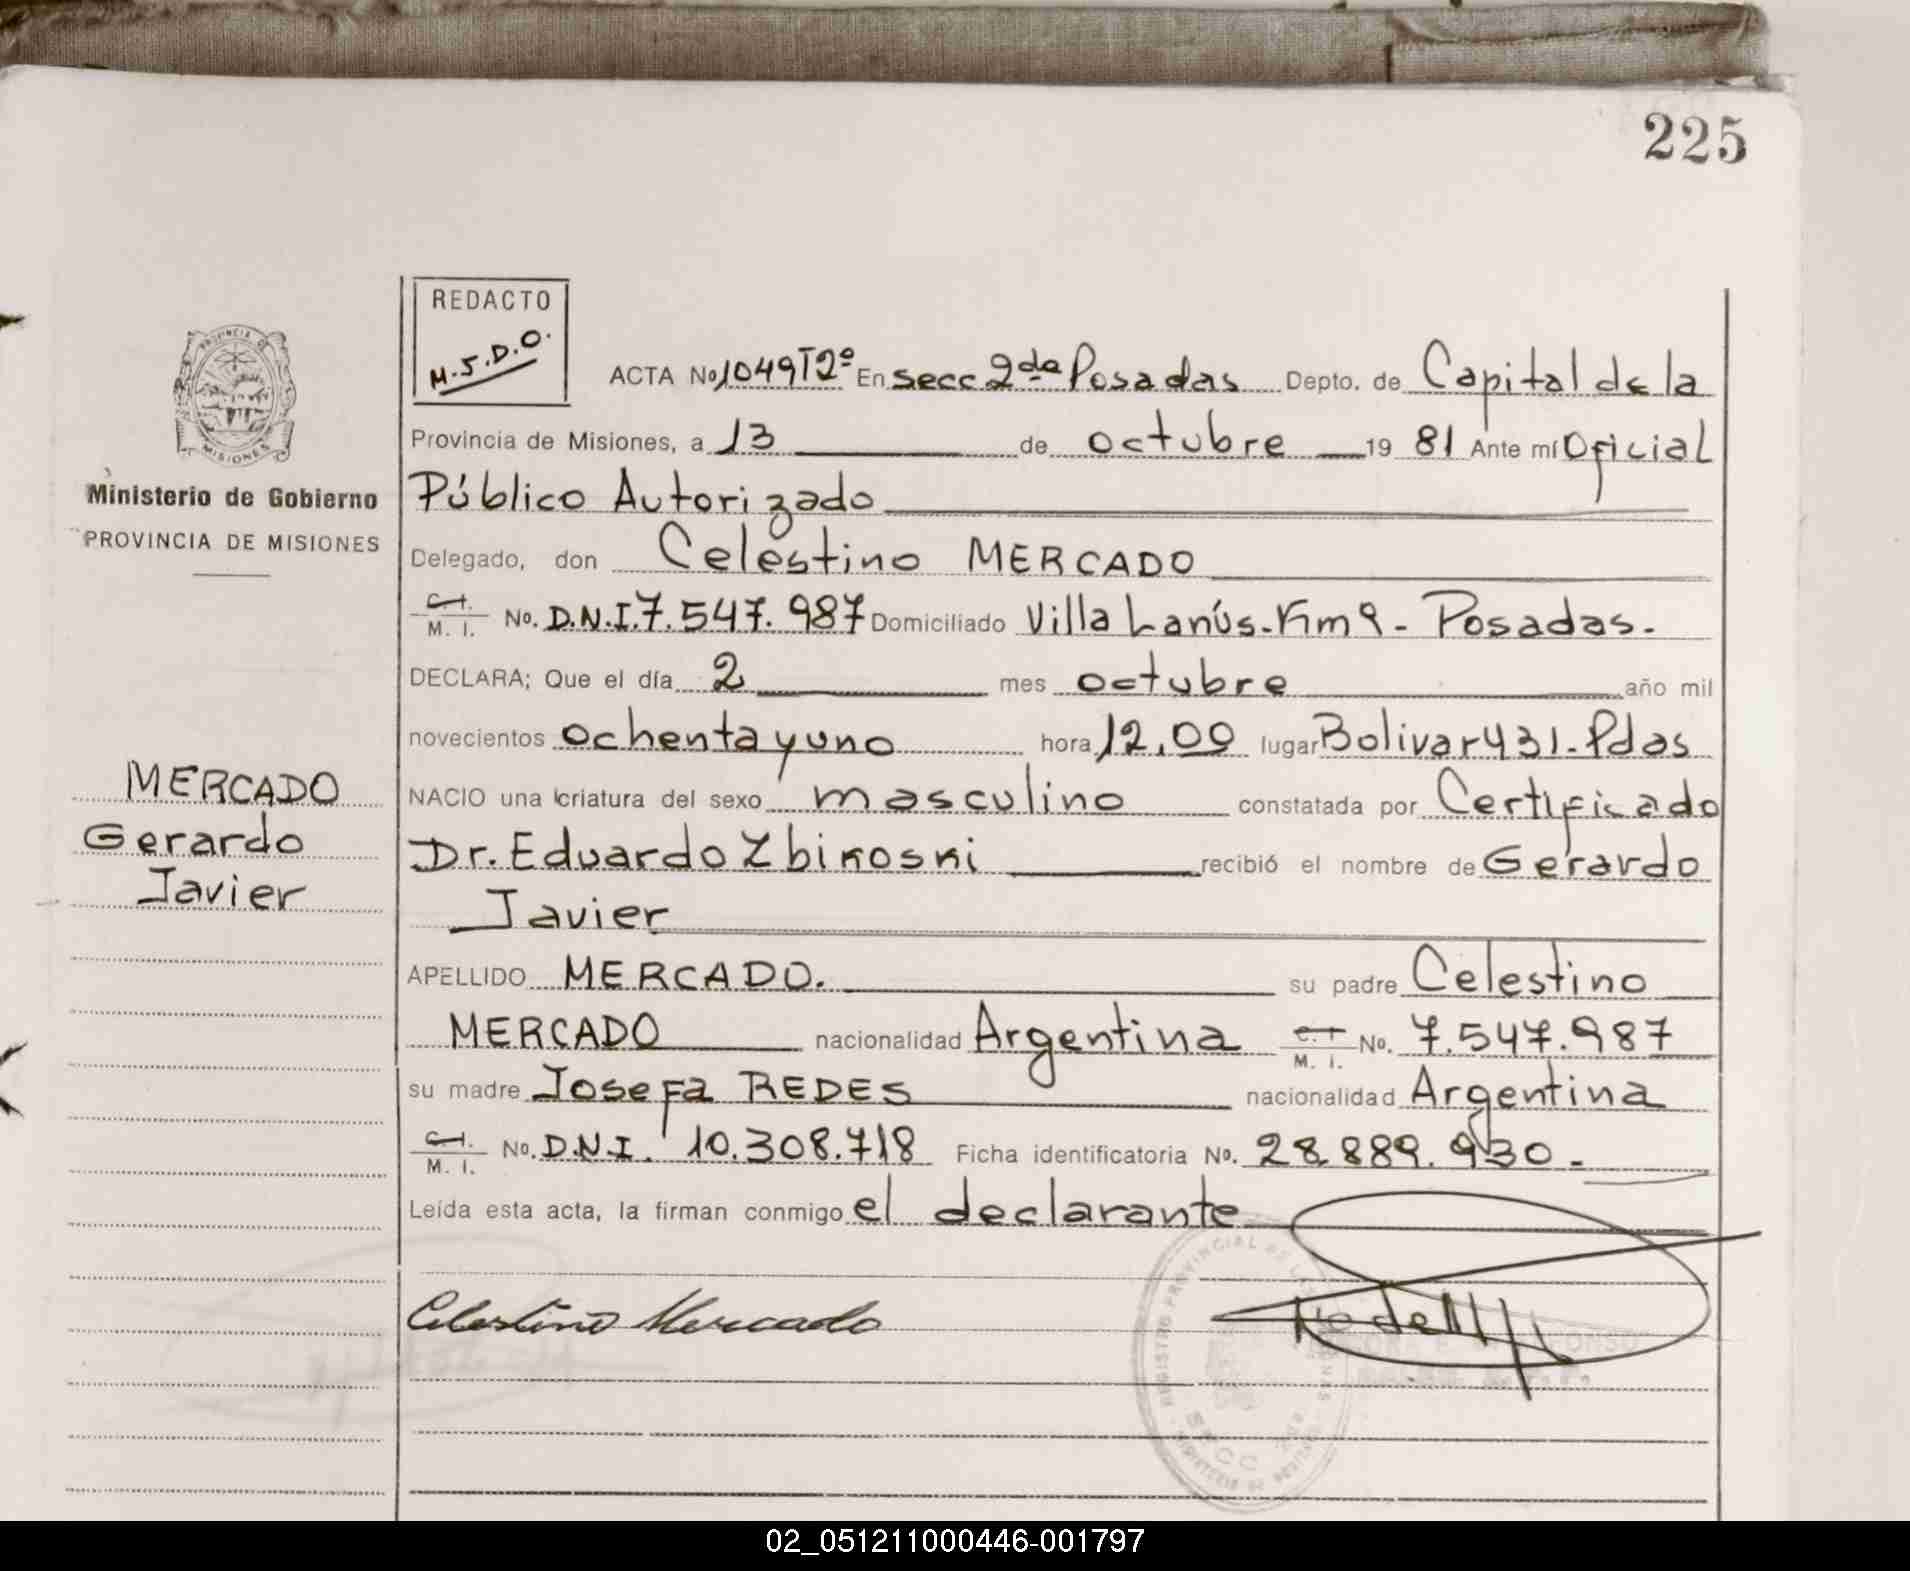 225
REDACTO
M.S.D.O.
ACTA No 1049 T2º En secc 2da Posadas Depto. de Capital de la
Provincia de Misiones, a 13 de octubre 19 81 Ante mí Oficial
Público Autorizado
Delegado, don Celestino MERCADO
C.I. M. I. No. D.N.I. 7.547.987 Domiciliado Villa Lanús-Km 9- Posadas.
DECLARA; Que el día 2 mes octubre año mil
novecientos ochenta y uno hora 12,00 lugar Bolivar 431-Pdas
NACIO una criatura del sexo masculino constatada por Certificado
Dr. Eduardo Zbikoski recibió el nombre de Gerardo
Javier
APELLIDO MERCADO. su padre Celestino
MERCADO nacionalidad Argentina C.I. M. I. No. 7.547.987
su madre Josefa REDES nacionalidad Argentina
C.I. M. I. No. D.N.I. 10.308.718 Ficha identificatoria No. 28.889.930-
Leída esta acta, la firman conmigo el declarante
Celestino Mercado
PROVINCIA DE
MISIONES
Ministerio de Gobierno
PROVINCIA DE MISIONES
MERCADO
Gerardo
Javier
REGISTRO PROVINCIAL DE LAS
SECC 2da
02_051211000446-001797